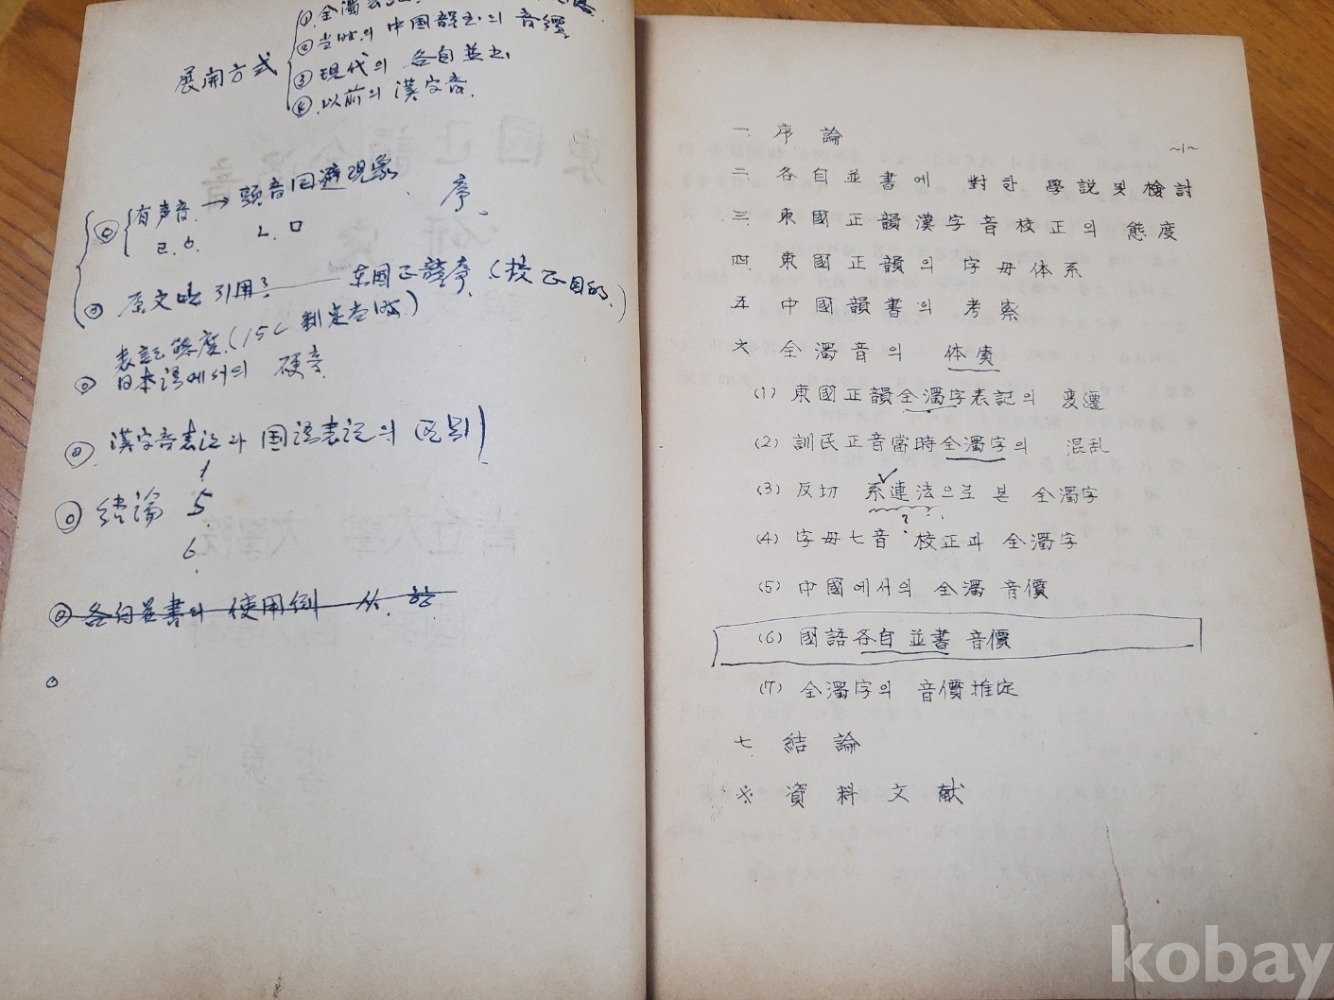 展開方式
② 当時의 中国韻書의 音
③ 現代의 各自並書
④ 以前의 漢字音.
有声音. → 頭音回避現象
ㄹ. ㆁ. ㄴ. ㅁ
序.
原文 引用? 東國正韻序 (校正目的.)
表記態度. (15C 制定当時)
日本語에서의 硬音
漢字音表記과 国語表記의 区別
結論 5
6
各自並書의 使用例
~1~
一. 序論
二 各自並書에 對한 學說 및 檢討
三. 東國正韻漢字音校正의 態度
四. 東國正韻의 字母体系
五 中國韻書의 考察
六 全濁音의 体質
(1) 東國正韻全濁字表記의 変遷
(2) 訓民正音當時全濁字의 混乱
(3) 反切 系連法으로 본 全濁字
(4) 字母七音 校正과 全濁字
(5) 中國에서의 全濁 音價
(6) 國語各自並書 音價
(7) 全濁字의 音價推定
七. 結論
※ 資料文献
kobay